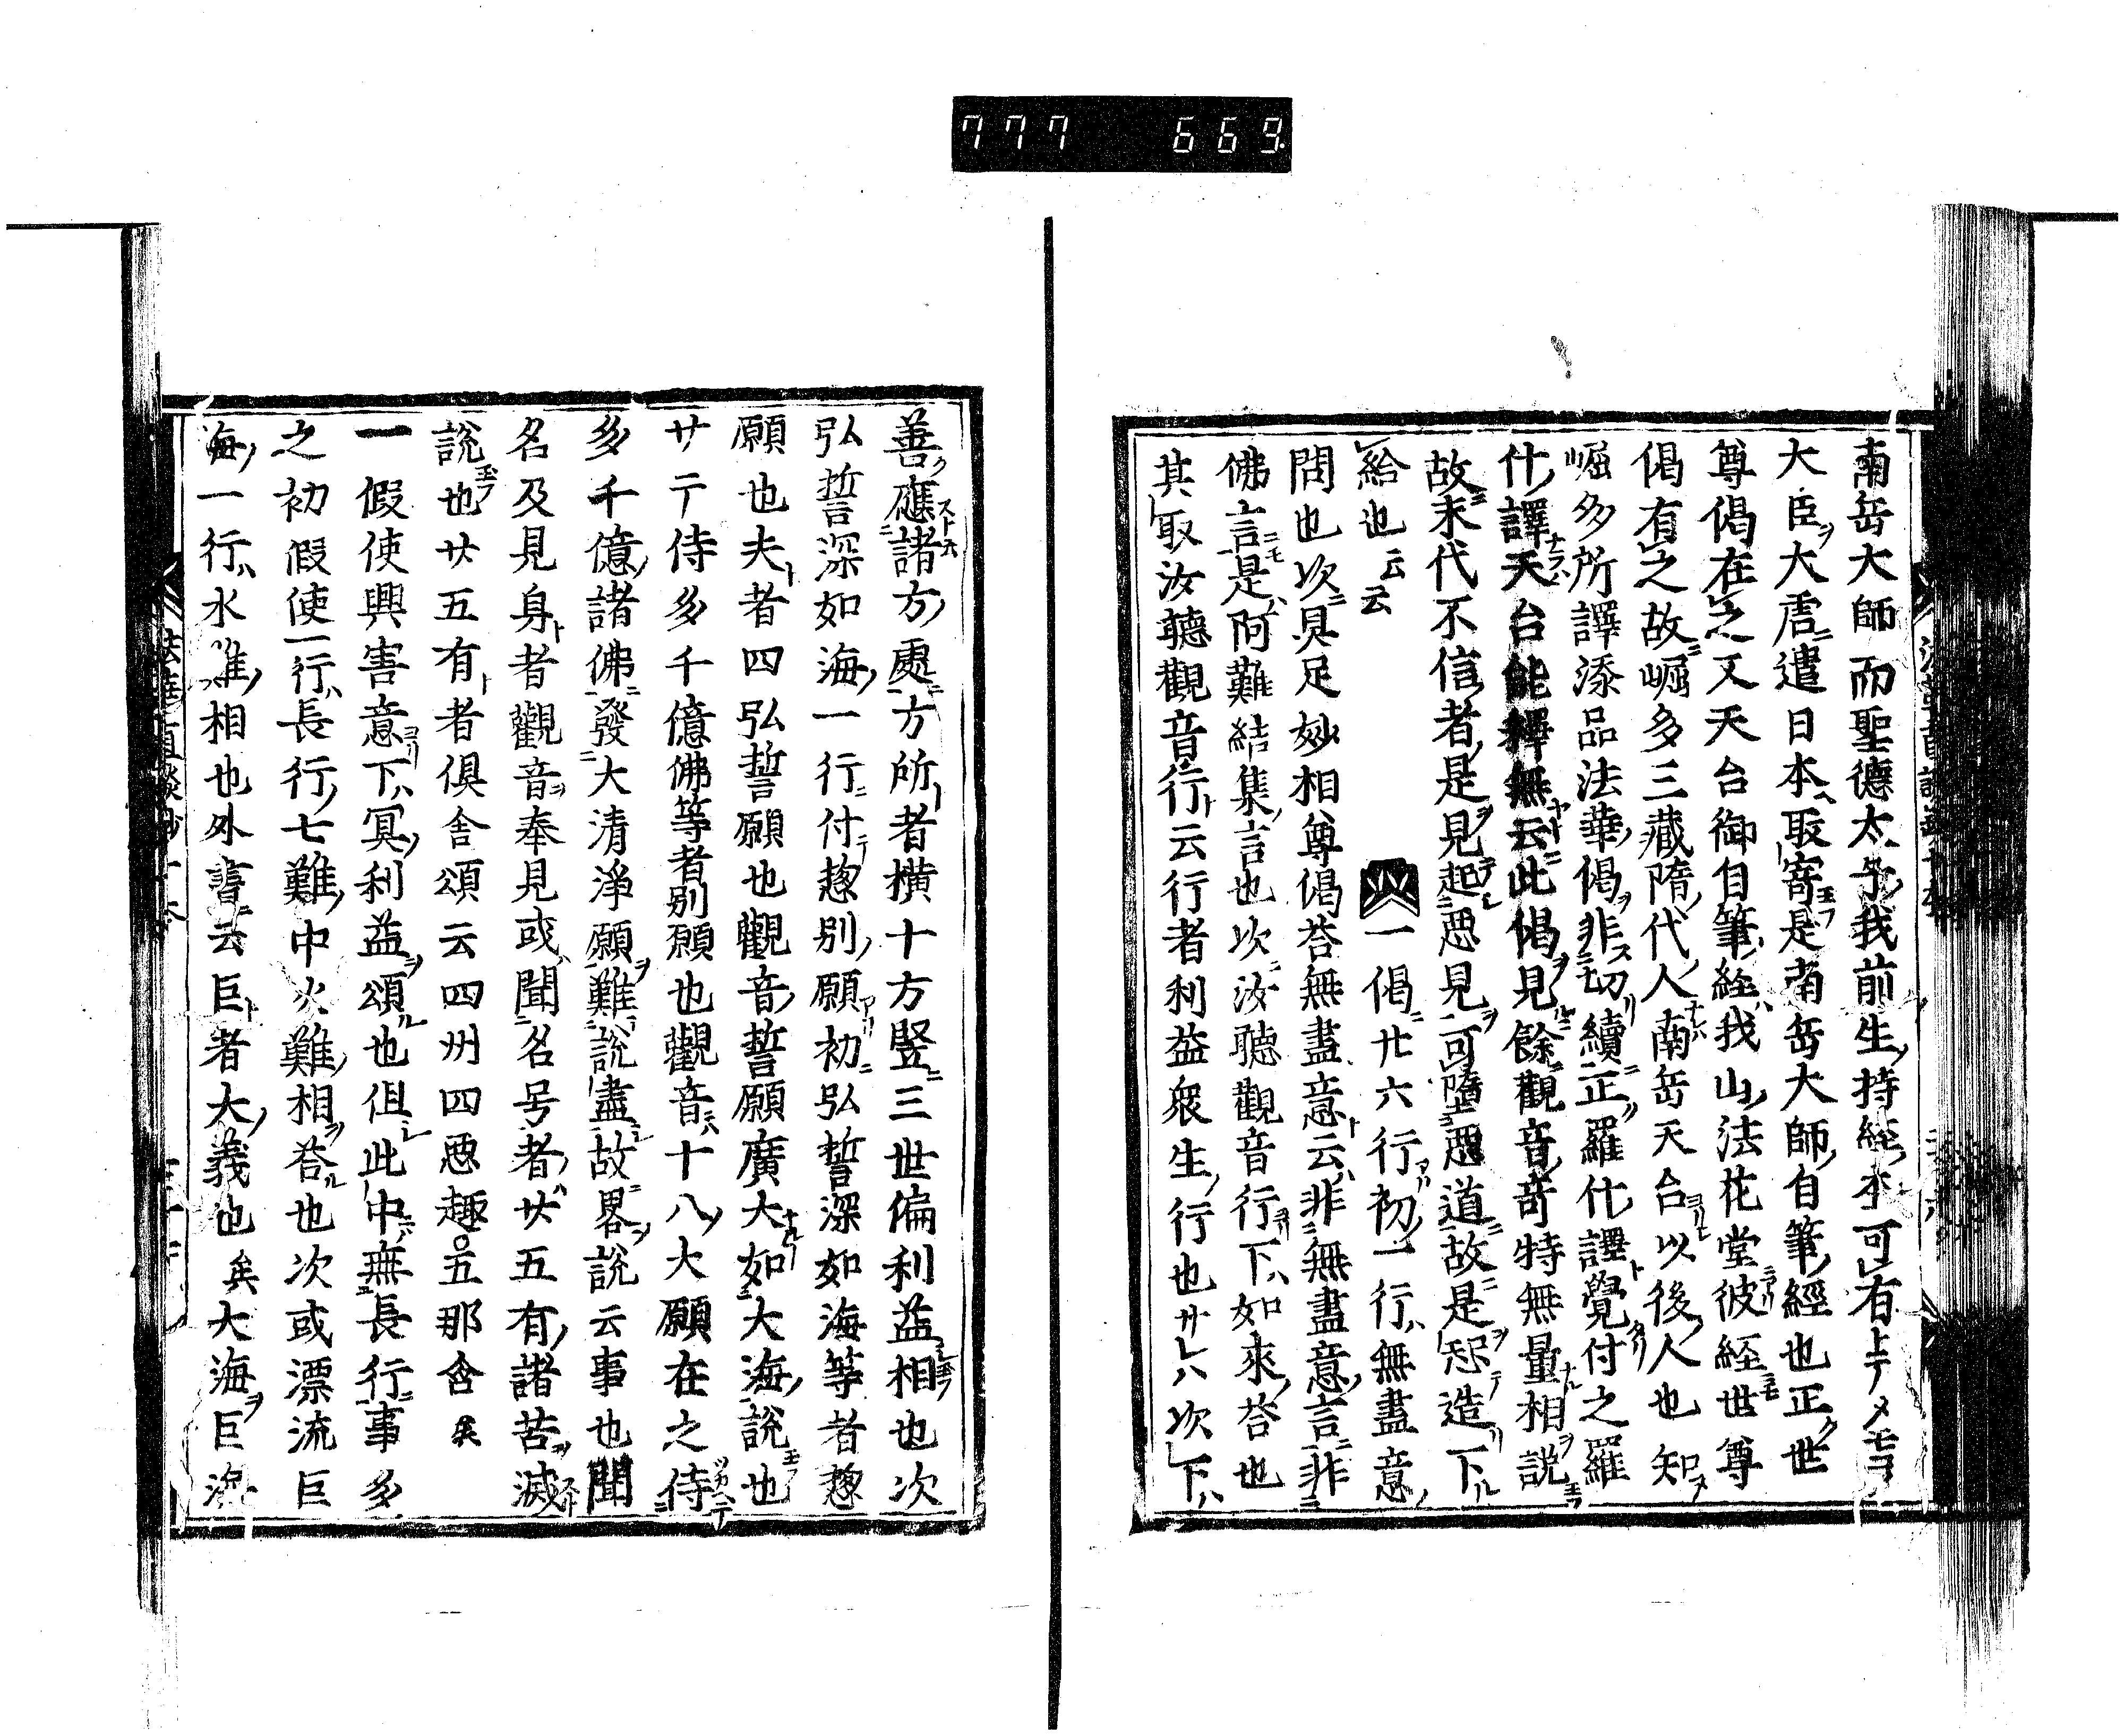 777 669
南岳大師而聖德太子我前生持經本可有上テメモヲ
大臣大唐遣日本取寄是南岳大師自筆經也正世
尊偈在之又天台御自筆經我山法花堂彼經世尊
偈有之故崛多三藏隋代人南岳天台以後人也知
崛多所譯添品法華偈非初續正羅什譯覺付之羅
什譯天台能釋無云此偈見餘觀音奇特無量相説
故末代不信者是見起惡見可墮惡道故是愁造下
給也云云　一偈廿六行初一行無盡意
問也次具足妙相尊偈荅無盡意云非無盡意言非
佛言是阿難結集言也次汝聽觀音行下如來荅也
其取汝聽觀音行云行者利益衆生行也廿六次下
善應諸方處方所者横十方竪三世偏利益相也次
弘誓深如海一行付惣別願初弘誓深如海等者惣
願也夫者四弘誓願也觀音誓願廣大如大海説也
廿二侍多千億佛等者別願也觀音十八大願在之侍
多千億諸佛發大清淨願難説盡故畧説云事也聞
名及見身者觀音奉見或聞名号者廿五有諸苦滅
説也廿五有者倶舎頌云四州四惡趣五那含矣
一假使興害意下冥利益頌也但此中無長行事多
之初假使一行長行七難中火難相荅也次或漂流巨
海一行水難相也外書云巨者大義也矣大海巨海